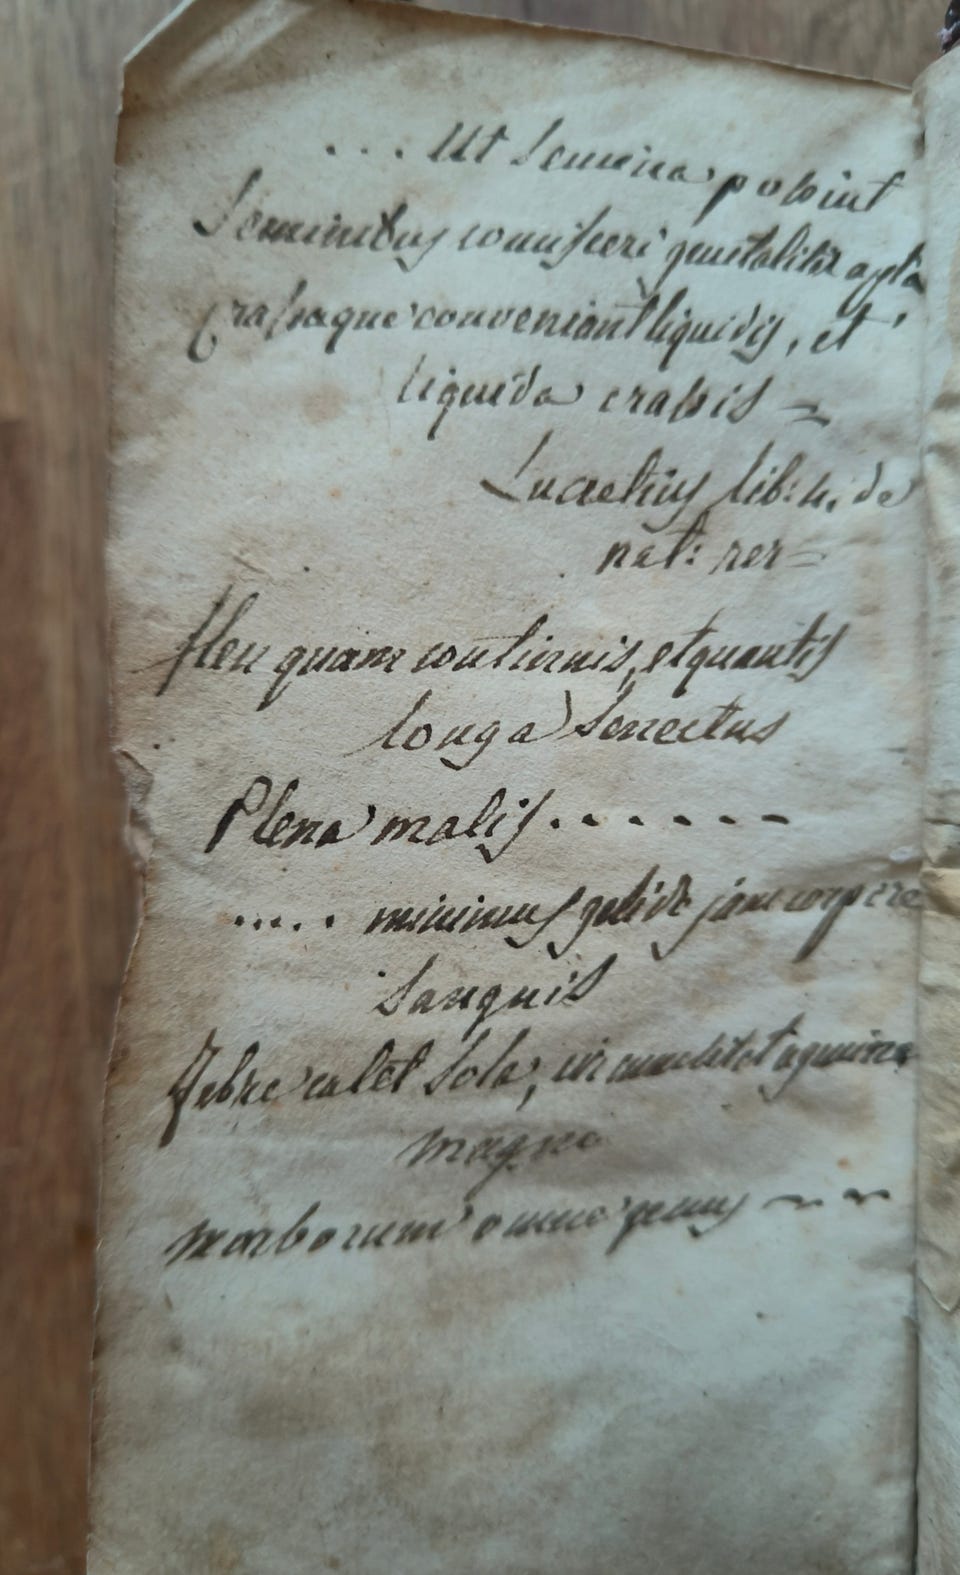 ... Ut Semina possint
Seminibus commisceri genitaliter apta
Crassaque conveniant liquidis, et
liquida crassis =
Lucretius lib: 4. de
nat: rer=
Heu quam continuis, et quantis
longa Senectus
Plena malis.......
..... minimus gelido jam corpore
Sanguis
Febre calet Sola, circumsilit agmine
magno
morborum omne genus ~~~